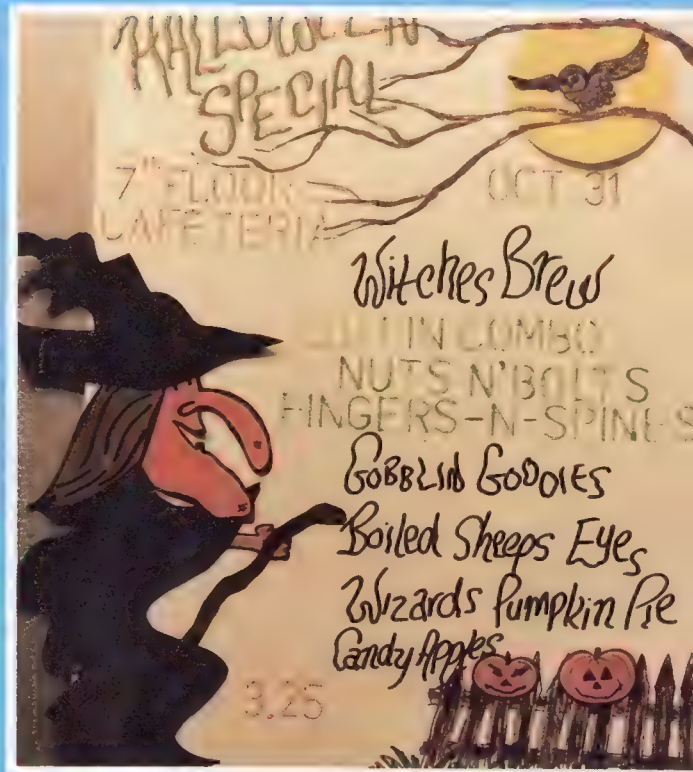 HALLOWEEN
SPECIAL
7TH FLOOR
CAFETERIA
OCT 31
Witches Brew
IN COMBO
NUTS N' BOLTS
FINGERS-N-SPINES
GOBBLIN GOODIES
Boiled Sheeps Eyes
Wizards Pumpkin Pie
Candy Apples
3.25